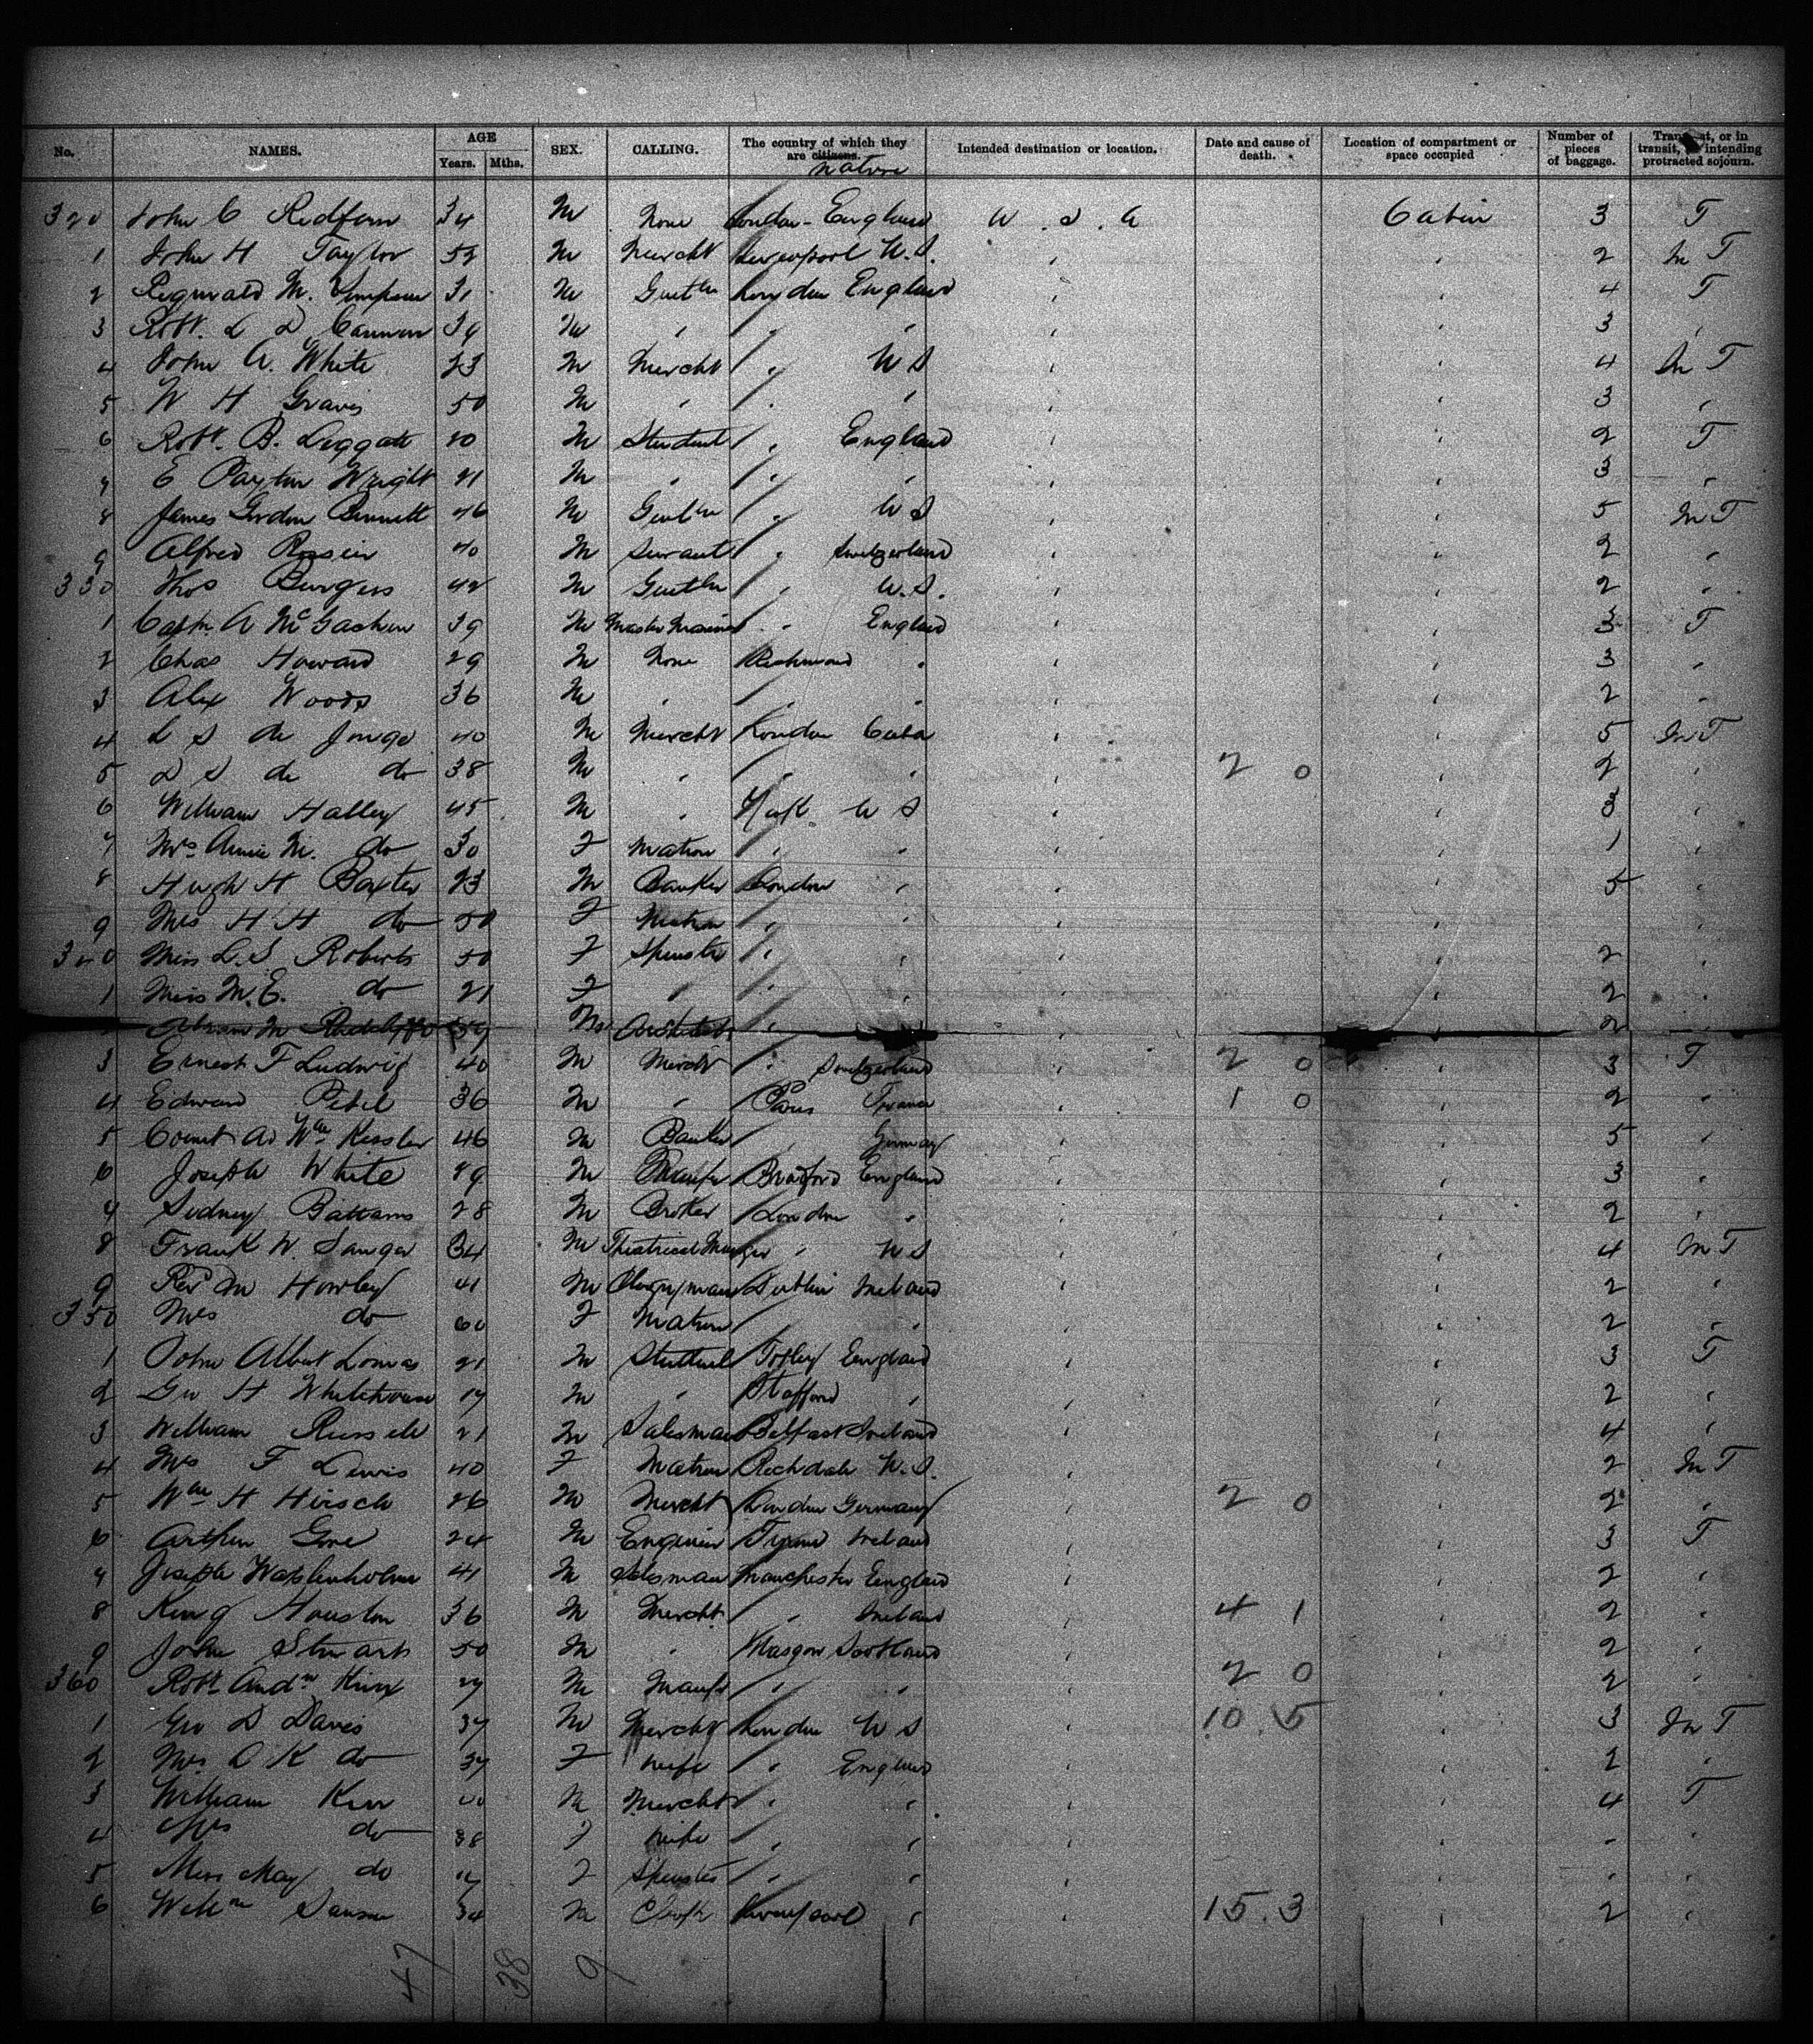 No. NAMES. AGE Years. Mths. SEX. CALLING. The country of which they are citizens. native Intended destination or location. Date and cause of death. Location of compartment or space occupied Number of pieces of baggage. Transient, or in transit, or intending protracted sojourn.
320 John C Redfern 34 M None London - England U.S.A Cabin 3 T
1 John H Taylor 52 M Mercht Liverpool U.S. " " 2 In T
2 Reginald M. Simpson 31 M Gentln London England " " 4 T
3 Robt. L D Cannon 39 M " " " " " 3 "
4 John A. White 23 M Mercht " U S " " 4 In T
5 W H Graves 50 M " " " " " 3 "
6 Robt. B. Leggatt 20 M Student " England " " 2 T
7 E Payton Wright 21 M " " " " " 3 "
8 James Gordon Bennett 46 M Gentln " U S " " 5 In T
9 Alfred 40 M Servant " Switzerland " " 2 "
330 Thos Burgess 42 M Gentln " U.S. " " 2 "
1 Captn. A 39 M Master Mariner " England " " 3 T
2 Chas Howard 29 M None Richmond " " " 3 "
3 Alex Woods 36 M " " " " " 2 "
4 L S de Jonge 40 M Mercht London Cuba " " 5 In T
5 D S de do 38 M " " " " 2 0 " 2 "
6 William Halley 45 M " York U S " " 3 "
7 Mrs Annie M. do 30 F Matron " " " " 1 "
8 Hugh H Baxter 23 M Banker London " " " 5 "
9 Mrs H H do 50 F Matron " " " " "
340 Miss L. S Roberts 50 F Spinster " " " " 2 "
1 Miss M. E. do 21 F " " " " " 2 "
M Architect " 2
3 Ernest F Ludwig 40 M Mercht " Switzerland " 2 0 " 3 T
4 Edward Petit 36 M " Paris France " 1 0 " 2 "
5 Count Ad Wm Kessler 46 M Banker " Germany " " 5 "
6 Joseph White 49 M Manfr Bradford England " " 3 "
7 Sidney Battams 28 M Broker London " " " 2 "
8 Frank W. Sanger 34 M Theatrical Manger " U S " " 4 In T
9 Revd M Howley 41 M Clergyman Dublin Ireland " " 2 "
350 Mrs do 60 F Matron " " " " 2 "
1 John Albert Lomas 21 M Student Totley England " " 3 T
2 Geo H Whitehouse 17 M " Stafford " " " 2 "
3 William Russell 21 M Salesman Belfast Ireland " " 4 "
4 Mrs F Lewis 40 F Matron Rochdale U.S. " " 2 In T
5 Wm H Hirsch 26 M Mercht London Germany " 2 0 " 2 "
6 Arthur Gore 24 M Engineer Tyrone Ireland " " 3 T
7 Joseph Wostenholm 41 M Salesman Manchester England " " 2 "
8 King Houston 36 M Mercht " Ireland " 4 1 " 2 "
9 John Stuart 50 M " Glasgow Scotland " " 2 "
360 Robt Andw 27 M Manfr " " " 2 0 " 2 "
1 Geo D Davis 37 M Mercht London U S " 10.5 " 3 In T
2 Mrs D K do 37 F Wife " England " " 2 "
3 William Kerr M Mercht " " " " 4 T
4 Mrs do 38 F Wife " " " " - "
5 Miss May do F Spinster " " " " - "
6 34 M Liverpool " " 15.3 " 2 "
47 38 9